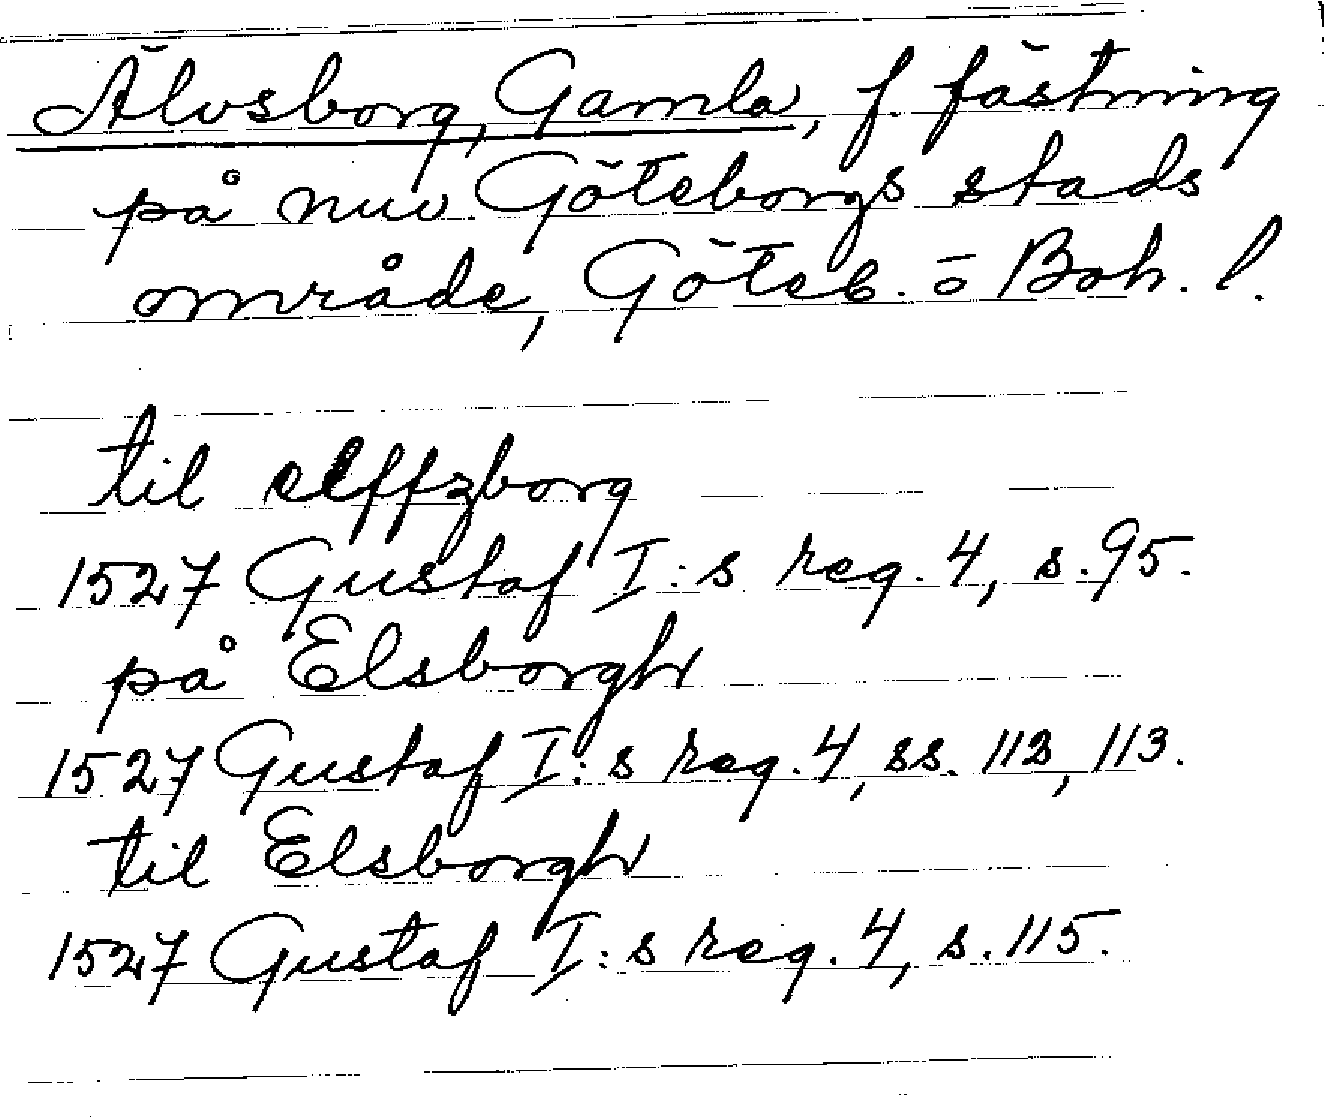 Älvsborg, Gamla, f. fästning
på nuv. Göteborgs stads
område, Göteb. o Boh. l.
til elffzborg
1527 Gustaf I:s reg. 4, s. 95.
på Elsborgh
1527 Gustaf I:s reg. 4, ss. 112, 113.
til Elsborgh
1527 Gustaf I:s reg. 4, s. 115.